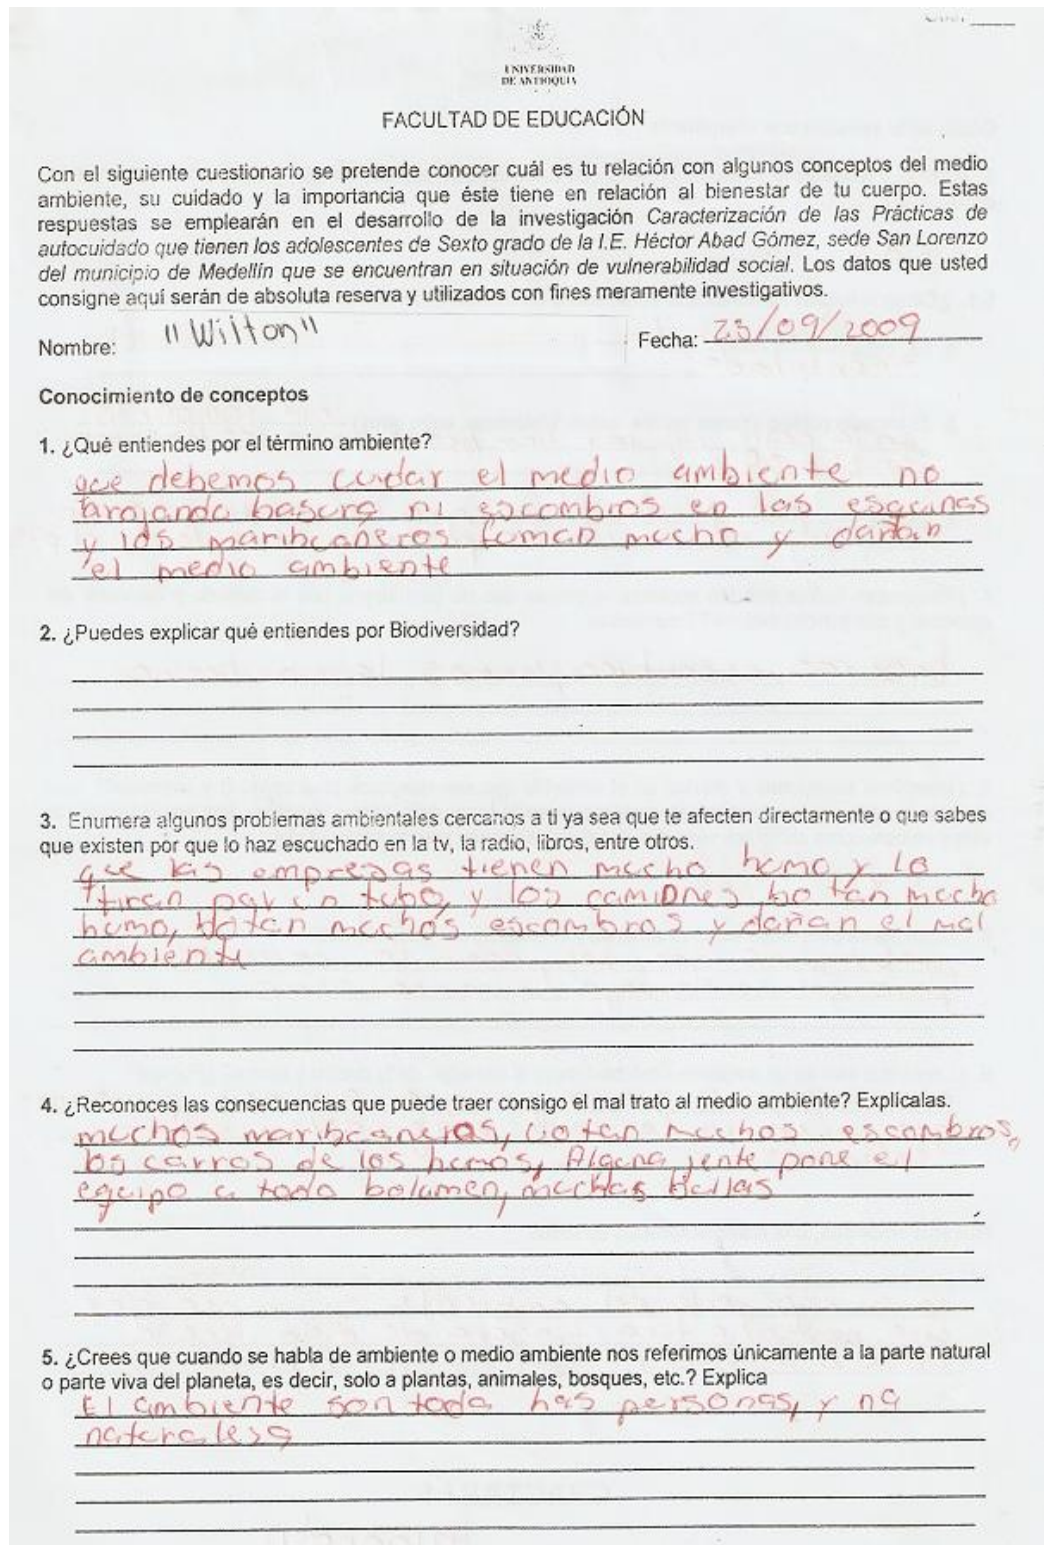 UNIVERSIDAD
DE ANTIOQUIA
FACULTAD DE EDUCACIÓN
Con el siguiente cuestionario se pretende conocer cuál es tu relación con algunos conceptos del medio
ambiente, su cuidado y la importancia que éste tiene en relación al bienestar de tu cuerpo. Estas
respuestas se emplearán en el desarrollo de la investigación Caracterización de las Prácticas de
autocuidado que tienen los adolescentes de Sexto grado de la I.E. Héctor Abad Gómez, sede San Lorenzo
del municipio de Medellín que se encuentran en situación de vulnerabilidad social. Los datos que usted
consigne aquí serán de absoluta reserva y utilizados con fines meramente investigativos.
Nombre: "Wilton" Fecha: 23/09/2009
Conocimiento de conceptos
1. ¿Qué entiendes por el término ambiente?
que debemos cuidar el medio ambiente no
arojando basura ni escombros en las esquinas
y los maribuaneros fuman mucho y dañan
el medio ambiente
2. ¿Puedes explicar qué entiendes por Biodiversidad?
3. Enumera algunos problemas ambientales cercanos a ti ya sea que te afecten directamente o que sabes
que existen por que lo haz escuchado en la tv, la radio, libros, entre otros.
que las empresas tienen mucho humo y lo
tiran por un tubo, y los camiones botan mucho
humo, botan muchos escombros y dañan el mal
ambiente
4. ¿Reconoces las consecuencias que puede traer consigo el mal trato al medio ambiente? Explícalas.
muchos maribuaneros, votan muchos escombros,
los carros de los humos, Alguna jente pone el
equipo a todo bolumen, muchas
5. ¿Crees que cuando se habla de ambiente o medio ambiente nos referimos únicamente a la parte natural
o parte viva del planeta, es decir, solo a plantas, animales, bosques, etc.? Explica
El ambiente son toda has personas, y na
naturalesa